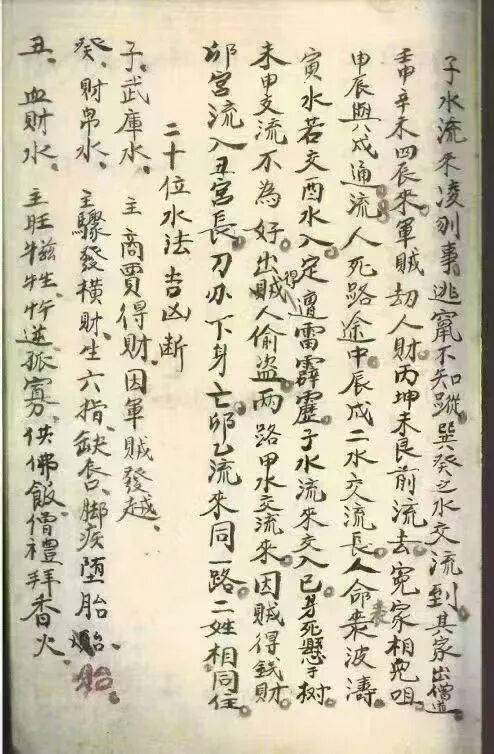 子水流來凌別事。逃竄不知蹤。巽癸之水交流到。其家出僧道
壬申辛未四辰來。軍賊劫人財。丙坤未艮前流去。冤家相咒咀
甲辰與戌通流。人死路途中。辰戌二水交流長。人命喪波濤
寅水若交酉水入。定遭雷霹靂。子水流來交入巳。身死懸于树
未甲交流不為好。出得賊人偷盜。两路甲水交流來。因賊得錢財
卯宮流入丑宮長。刀亦下身亡。卯乙流來同一路。二姓相同住
二十位水法吉凶断
子。武庫水。主商賈得財。因軍賊發越。
癸。財帛水。主驟發横財。生六指。缺唇。脚疾堕胎。
丑。血財水。主旺牲。忤逆孤寡。供佛飯僧禮拜香火